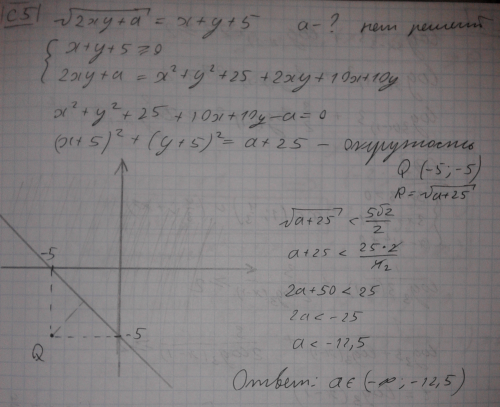 C5 √(2xy+a) = x+y+5 a-? нет решений
{ x+y+5 ≥ 0
2xy+a = x²+y²+25+2xy+10x+10y
x²+y²+25+10x+10y-a=0
(x+5)²+(y+5)²= a+25 – окружность
Q (-5;-5)
R=√(a+25)
√(a+25) < 5√2/2
a+25 < 25·2/4₂
2a+50<25
2a<-25
a<-12,5
-5
-5
Q
Ответ: a∈(-∞;-12,5)